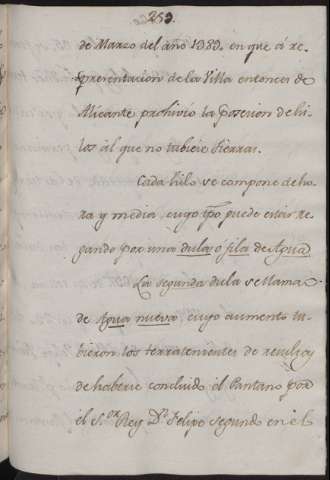 259.
de Marzo del año 1389. en que á re-
presentacion de la Villa entonces de
Alicante prohivio la posesion de hi-
los ál que no tubiese tierras.
Cada hilo se compone de ho-
ra y media, cuyo tpō puede estar re-
gando por una dula o fila de Agua
La segunda dula se llama
de Agua nueva, cuyo aumento tu-
bieron los terratenientes de resultas
de haberse concluido el Pantano por
el S.or Rey D.n Felipe segundo en el